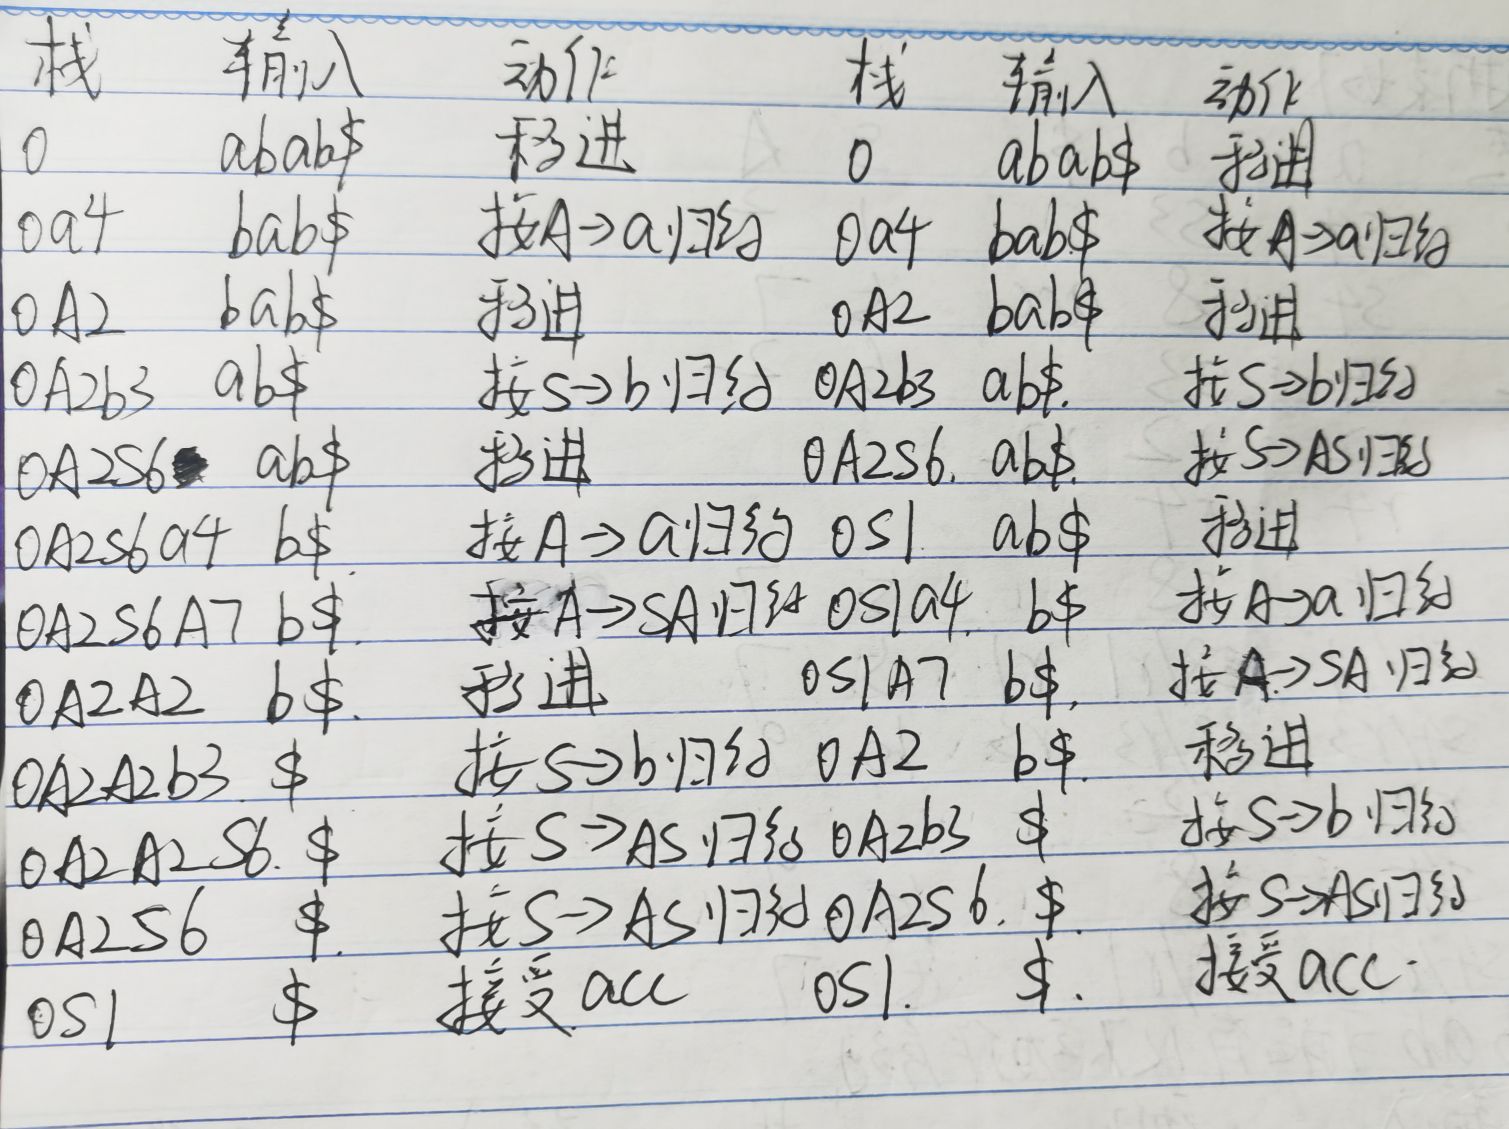 栈 输入 动作 栈 输入 动作
0 abab$ 移进 0 abab$ 移进
0a4 bab$ 按A→a归约 0a4 bab$ 按A→a归约
0A2 bab$ 移进 0A2 bab$ 移进
0A2b3 ab$ 按S→b归约 0A2b3 ab$. 按S→b归约
0A2S6 ab$ 移进 0A2S6. ab$. 按S→AS归约
0A2S6a4 b$. 按A→a归约 0S1 ab$ 移进
0A2S6A7 b$. 按A→SA归约 0S1a4. b$ 按A→a归约
0A2A2 b$. 移进 0S1A7 b$. 按A→SA归约
0A2A2b3. $ 按S→b归约 0A2 b$. 移进
0A2A2S6. $ 按S→AS归约 0A2b3 $ 按S→b归约
0A2S6 $. 按S→AS归约 0A2S6. $. 按S→AS归约
0S1 $ 接受acc 0S1. $. 接受acc.